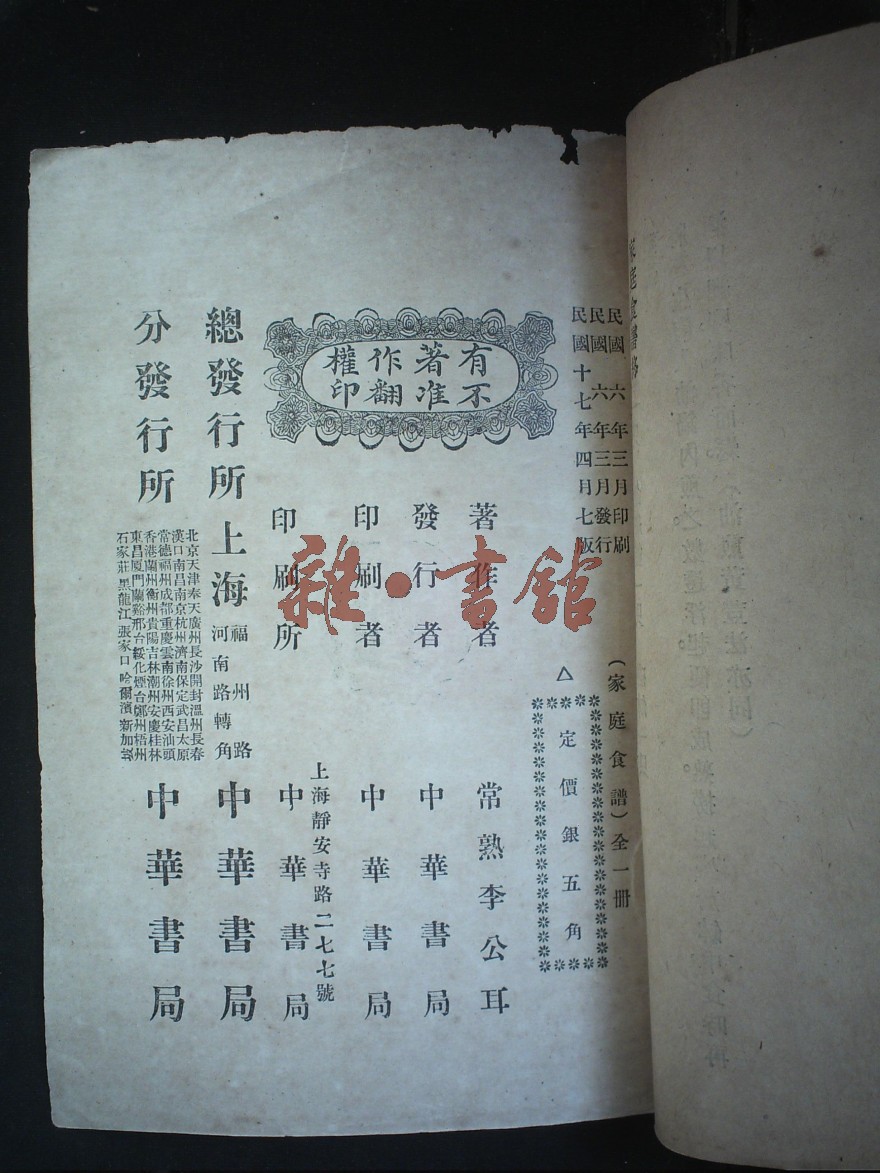 民國六年三月印刷
民國六年三月發行
民國十七年四月七版
(家庭食譜)全一冊
△定價銀五角
有著作權
不准翻印
著作者 常熟李公耳
發行者 中華書局
印刷者 中華書局
上海靜安寺路二七七號
印刷所 中華書局
總發行所 上海 福州路河南路轉角 中華書局
分發行所 中華書局
北京天津奉天廣州長沙開封溫州長春
漢口南昌南京杭州濟南保定武昌太原
常德福州成都重慶雲南徐州西安汕頭
香港蘭州衡州貴陽吉林潮州安慶桂林
東昌厦門蘭谿邢台綏化煙台鄭州梧州
石家莊黑龍江張家口哈爾濱新加坡
雜·書館